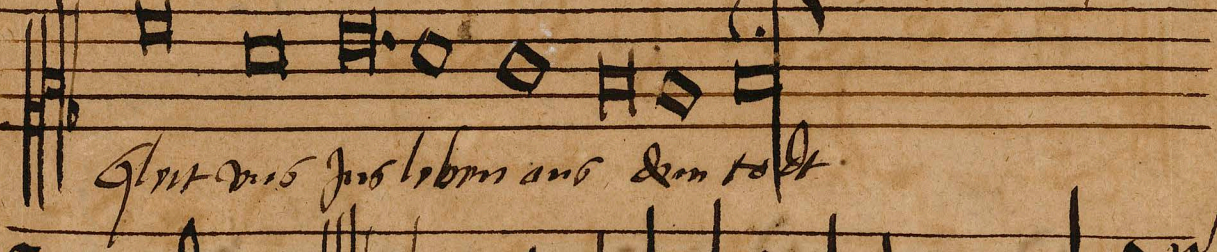 Gleit vns Jns leben aus dem todt